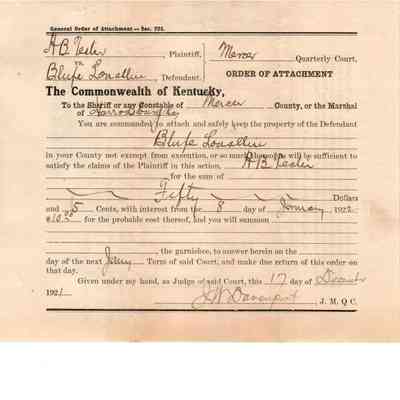 General Order of Attachment — Sec. 221.
H B Nesler, Plaintiff, Mercer Quarterly Court,
Blufe Lonallen, Defendant. ORDER OF ATTACHMENT
The Commonwealth of Kentucky,
To the Sheriff or any Constable of Mercer County, or the Marshal
of Harrodsburg Ky
You are commanded to attach and safely keep the property of the Defendant
Blufe Lonallen
in your County not exempt from execution, or so much thereof as will be sufficient to
satisfy the claims of the Plaintiff in this action, H B Nesler
for the sum of
Fifty Dollars
and 5 Cents, with interest from the 8 day of January 1922
$10.00 for the probable cost thereof, and you will summon
, the garnishee, to answer herein on the
day of the next Jany Term of said Court, and make due return of this order on
that day.
Given under my hand, as Judge of said Court, this 17 day of December
1921 J W Davenport J. M. Q. C.